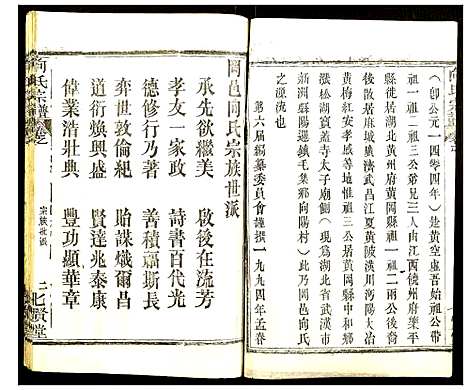 向氏宗譜
（即公元一四零四年）是黄空虚吾始祖公帶
祖一祖二祖三公弟兄三人由江西饒州府樂平
縣徙居湖北黄州府黄岡縣祖一祖二兩公後
後散居麻城廣濟武昌江夏黄陂漢川沔陽大冶
黄梅六安孝感等地惟祖三公居黄岡縣中和鄉
還和區蓋寺太子廟側（現為湖北省武漢市
新洲縣蘇陽道鎮毛集鄉向陽村）此乃岡邑向氏
之源流也
第六届編纂委員會謹撰一九九四年孟春
岡邑向氏宗族世派
承先欲繼美　啟後在流芳
孝友一家政　詩書百代光
德修行乃著　善積福斯長
奕世敦倫紀　貽謀熾爾昌
道衍煥興盛　賢達兆泰康
偉業浩壯典　豐功顯華章
向氏宗譜
宗族世派
七賢堂